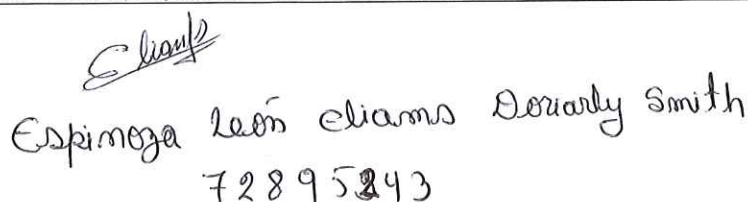 Eliamfs
Espinoza León eliams Doriarly Smith
72895243